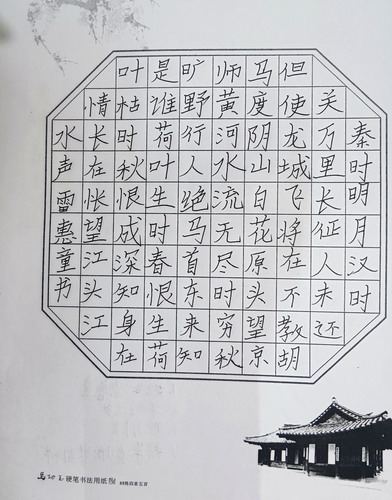 秦时明月汉时
关万里长征人未还
但使龙城飞将在不教胡
马度阴山白花原头望京
师黄河水流无尽时穷秋
旷野行人绝马首东来知
是谁荷叶生时春恨生荷
叶枯时秋恨成深知身在
情长在怅望江头江
水声雷惠童书
硬笔书法用纸